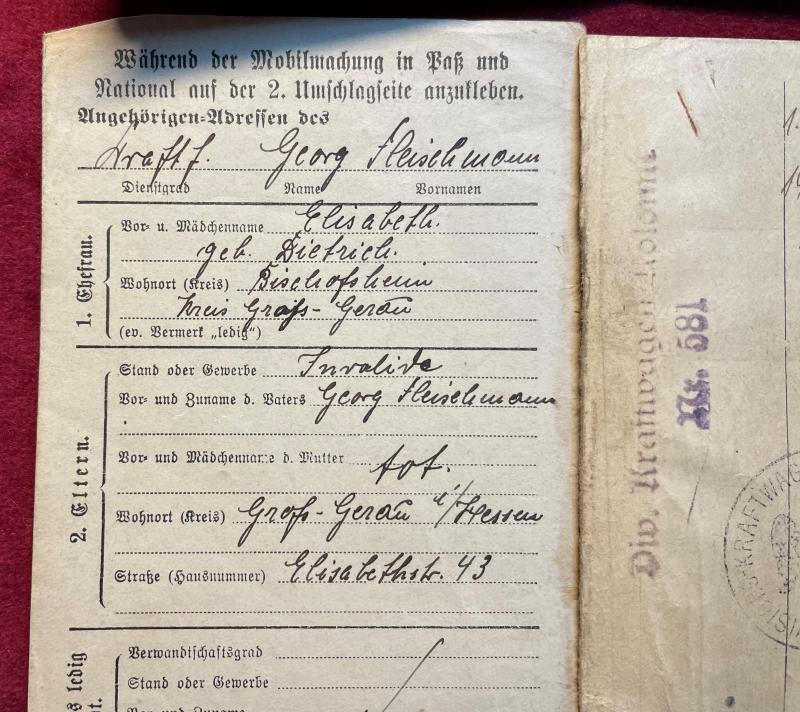 Während der Mobilmachung in Paß und
National auf der 2. Umschlagseite anzukleben.
Angehörigen-Adressen des
Kraftf. Georg Fleischmann
Dienstgrad Name Vornamen
1. Ehefrau.
Vor- u. Mädchenname Elisabeth.
geb. Dietrich.
Wohnort (Kreis) Bischofsheim
Kreis Groß-Gerau
(ev. Vermerk „ledig“)
2. Eltern.
Stand oder Gewerbe Invalide
Vor- und Zuname d. Vaters Georg Fleischmann
Vor- und Mädchenname d. Mutter tot.
Wohnort (Kreis) Groß-Gerau i/Hessen
Straße (Hausnummer) Elisabethstr. 43
ledig
Verwandtschaftsgrad
Stand oder Gewerbe
Vor- und Zuname
Div. Kraftwagen-Kolonne
Nr. 581
KRAFTWAG